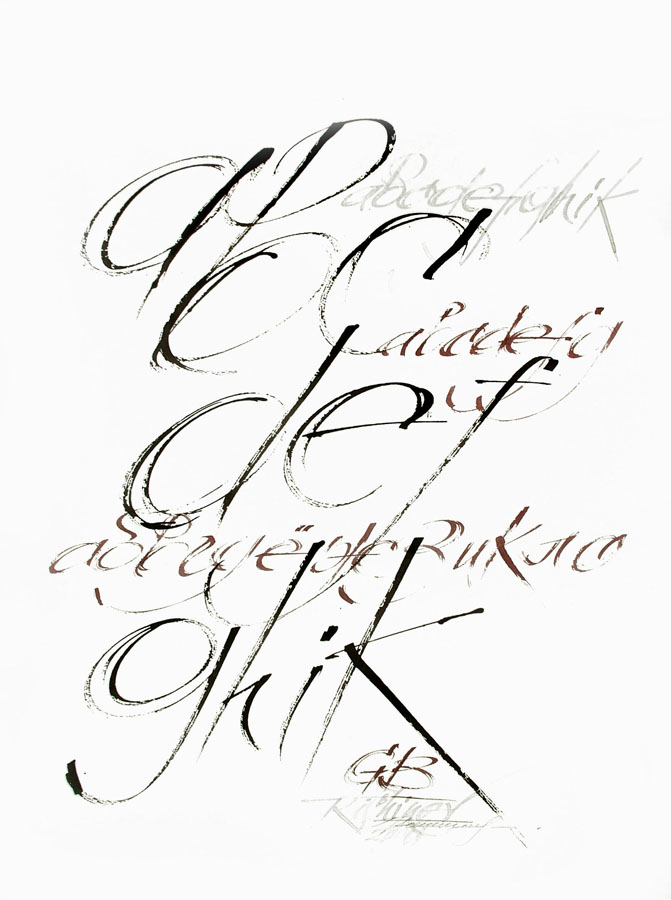 abc
abcdefghik
abcdefg
def
абвгдеёжзиклo
ghik
GB